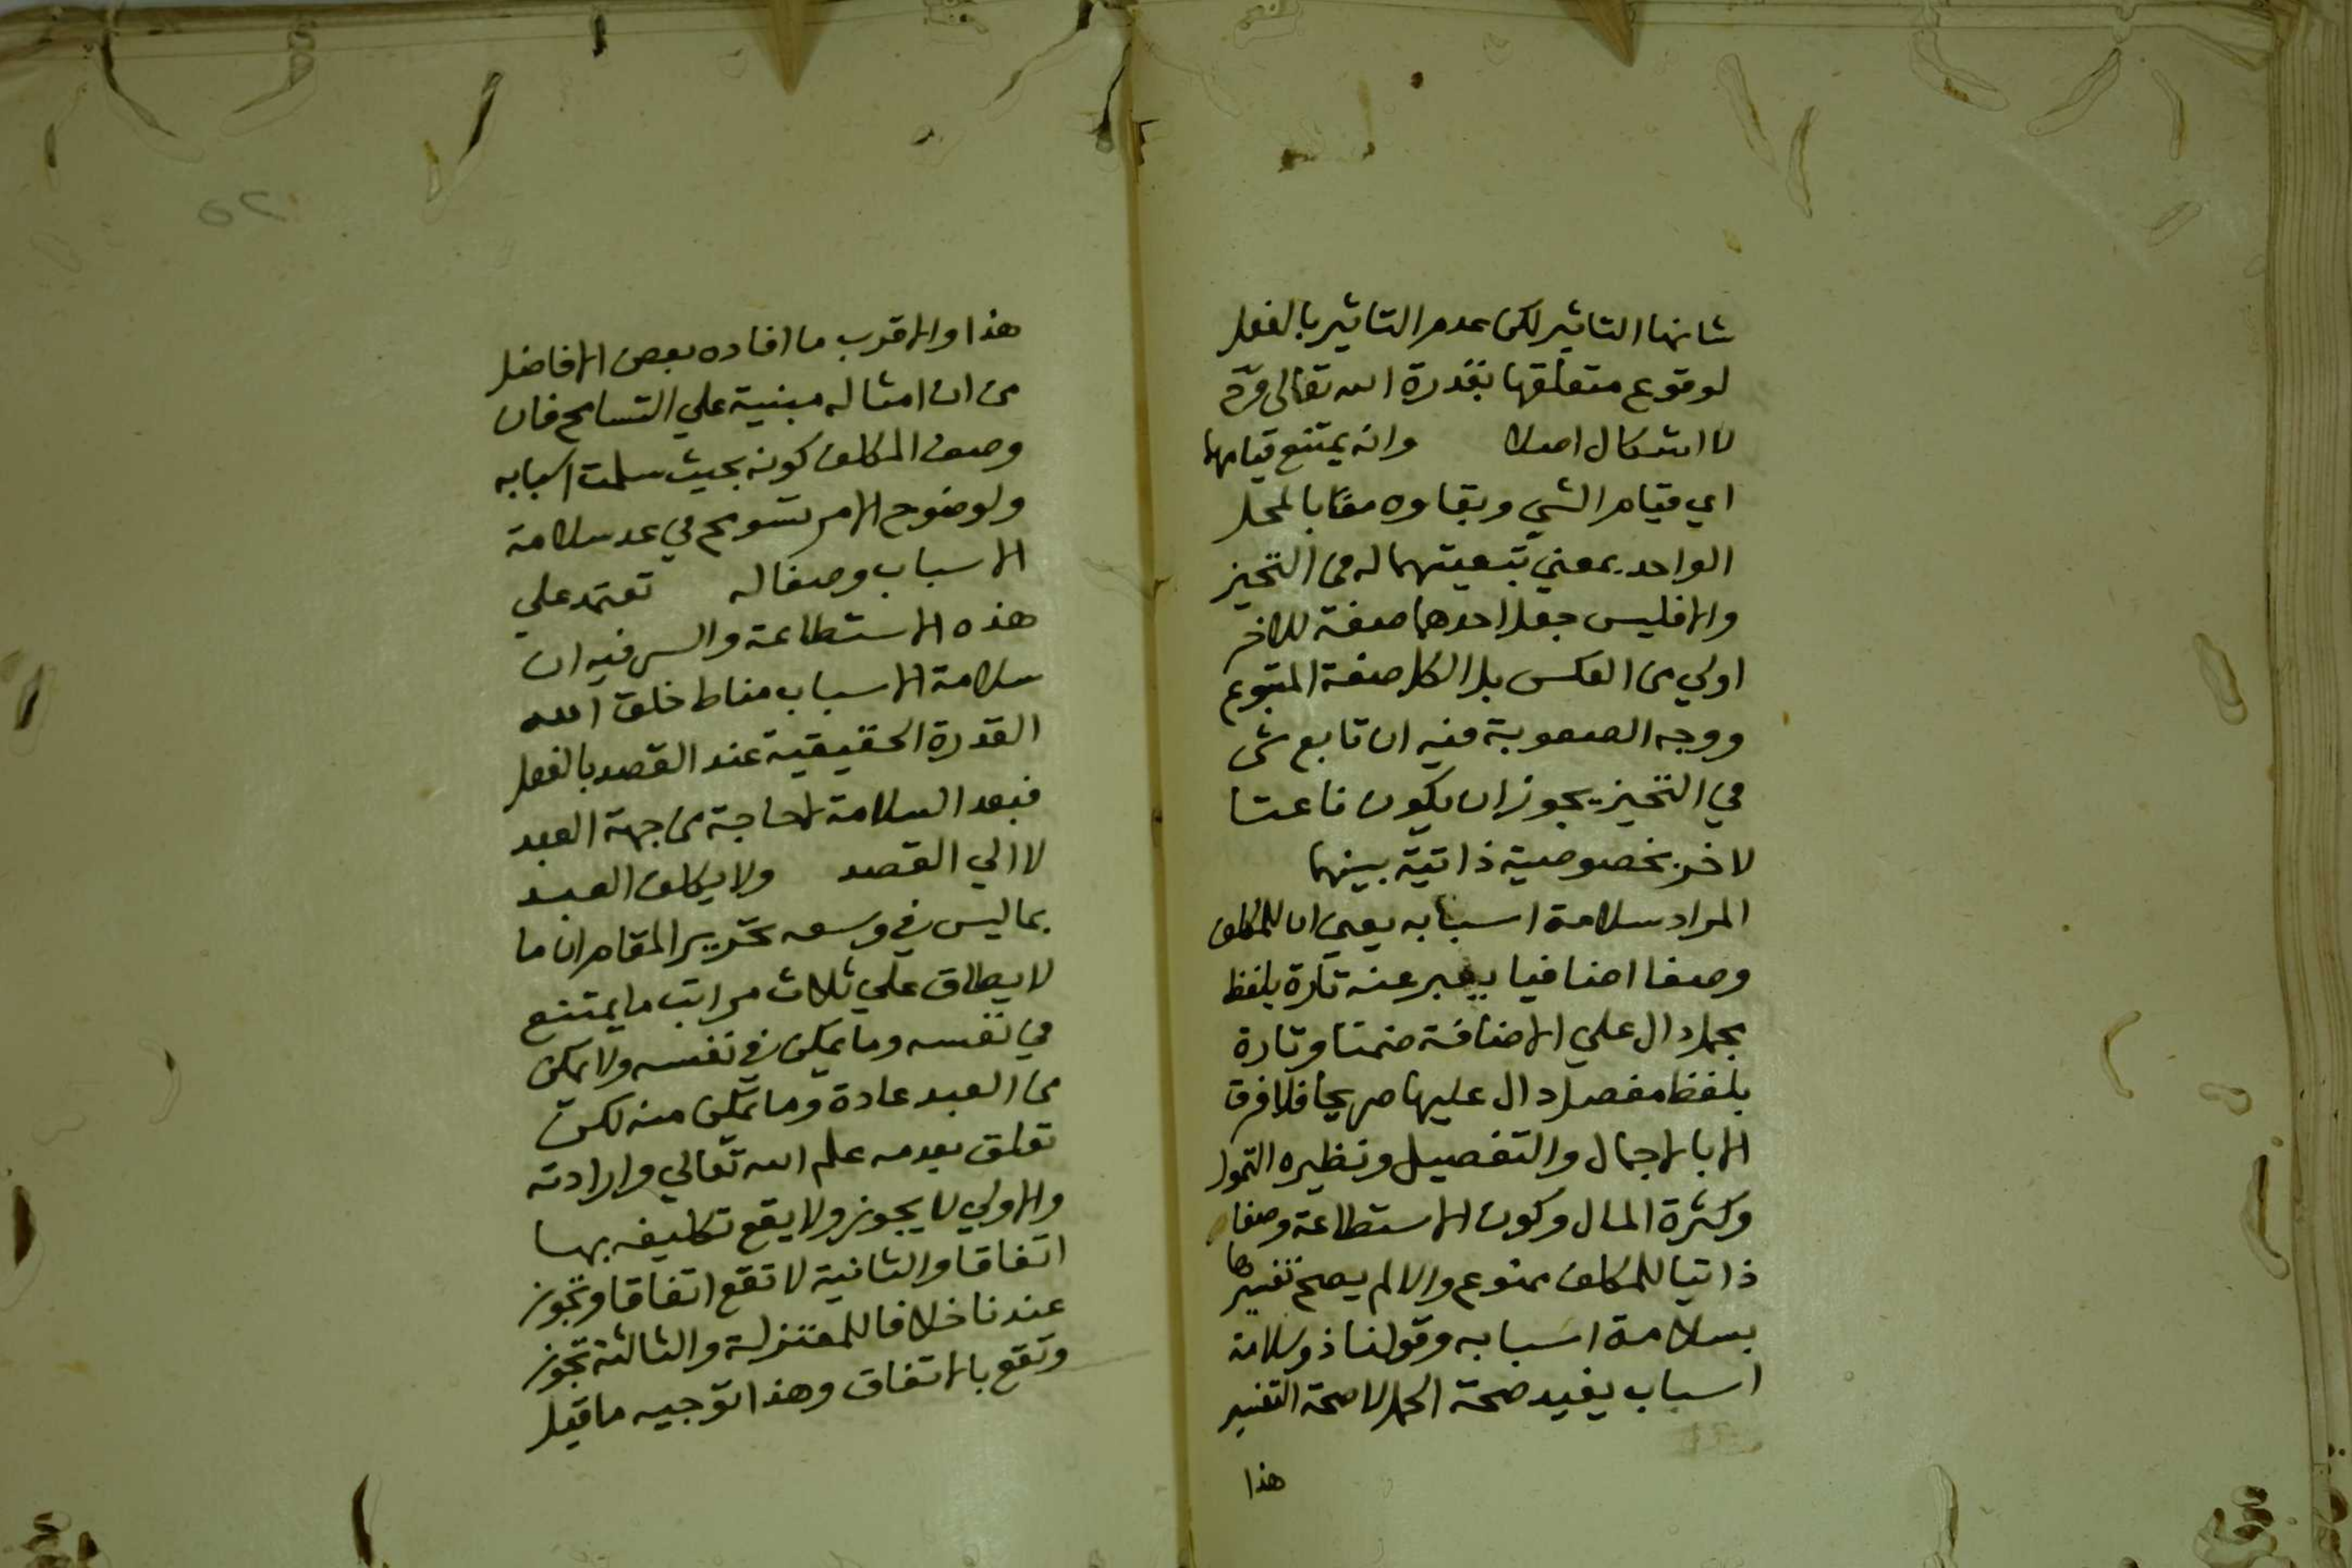 شانها التاثير لكن عدم التاثير بالفعل
لوقوع متعلقها بقدرة الله تعالى فح
لا اشكال اصلا وانه يمتنع قيامهما
اي قيام الشي وبقاوه معًا بالمحل
الواحد بمعني تبعيتهما له في التحيز
والا فليس جعل احدهما صفة للاخر
اولي من العكس بل الكل صفة المتبوع
ووجه الصعوبة فيه ان تابع شي
في التحيز يجوز ان يكون ناعتا
لاخر بخصوصية ذاتية بينهما
المراد سلامة اسبابه يعني ان للمكلف
وصفا اضافيا يعبر عنه تارة بلفظ
مجمل دال علي الاضافة ضمنا وتارة
بلفظ مفصل دال عليها صريحا فلا فرق
الا بالاجمال والتفصيل ونظيره التمول
وكثرة المال وكون الاستطاعة وصفا
ذاتيا للمكلف ممنوع والا لم يصح تفسيرها
بسلامة اسبابه وقولنا ذو سلامة
اسباب يفيد صحة الحمل لا صحة التفسير
هذا
٥٢
هذا والاقرب ما افاده بعض الافاضل
من ان امثاله مبنية علي التسامح فان
وصف المكلف كونه بحيث سلمت اسبابه
ولوضوح الامر تسومح في عد سلامة
الاسباب وصفا له تعتمد علي
هذه الاستطاعة والسر فيه ان
سلامة الاسباب مناط خلق الله
القدرة الحقيقية عند القصد بالفعل
فبعد السلامة لا حاجة من جهة العبد
لا الي القصد ولا يكلف العبد
بما ليس في وسعه تحرير المقام ان ما
لا يطاق علي ثلاث مراتب ما يمتنع
في نفسه وما يمكن في نفسه ولا يمكن
من العبد عادة وما يمكن منه لكن
تعلق بعدمه علم الله تعالي وارادته
والاولي لا يجوز ولا يقع تكليفه بها
اتفاقا والثانية لا تقع اتفاقا وتجوز
عندنا خلافا للمعتزلة والثالثة تجوز
وتقع بالاتفاق وهذا توجيه ما قيل